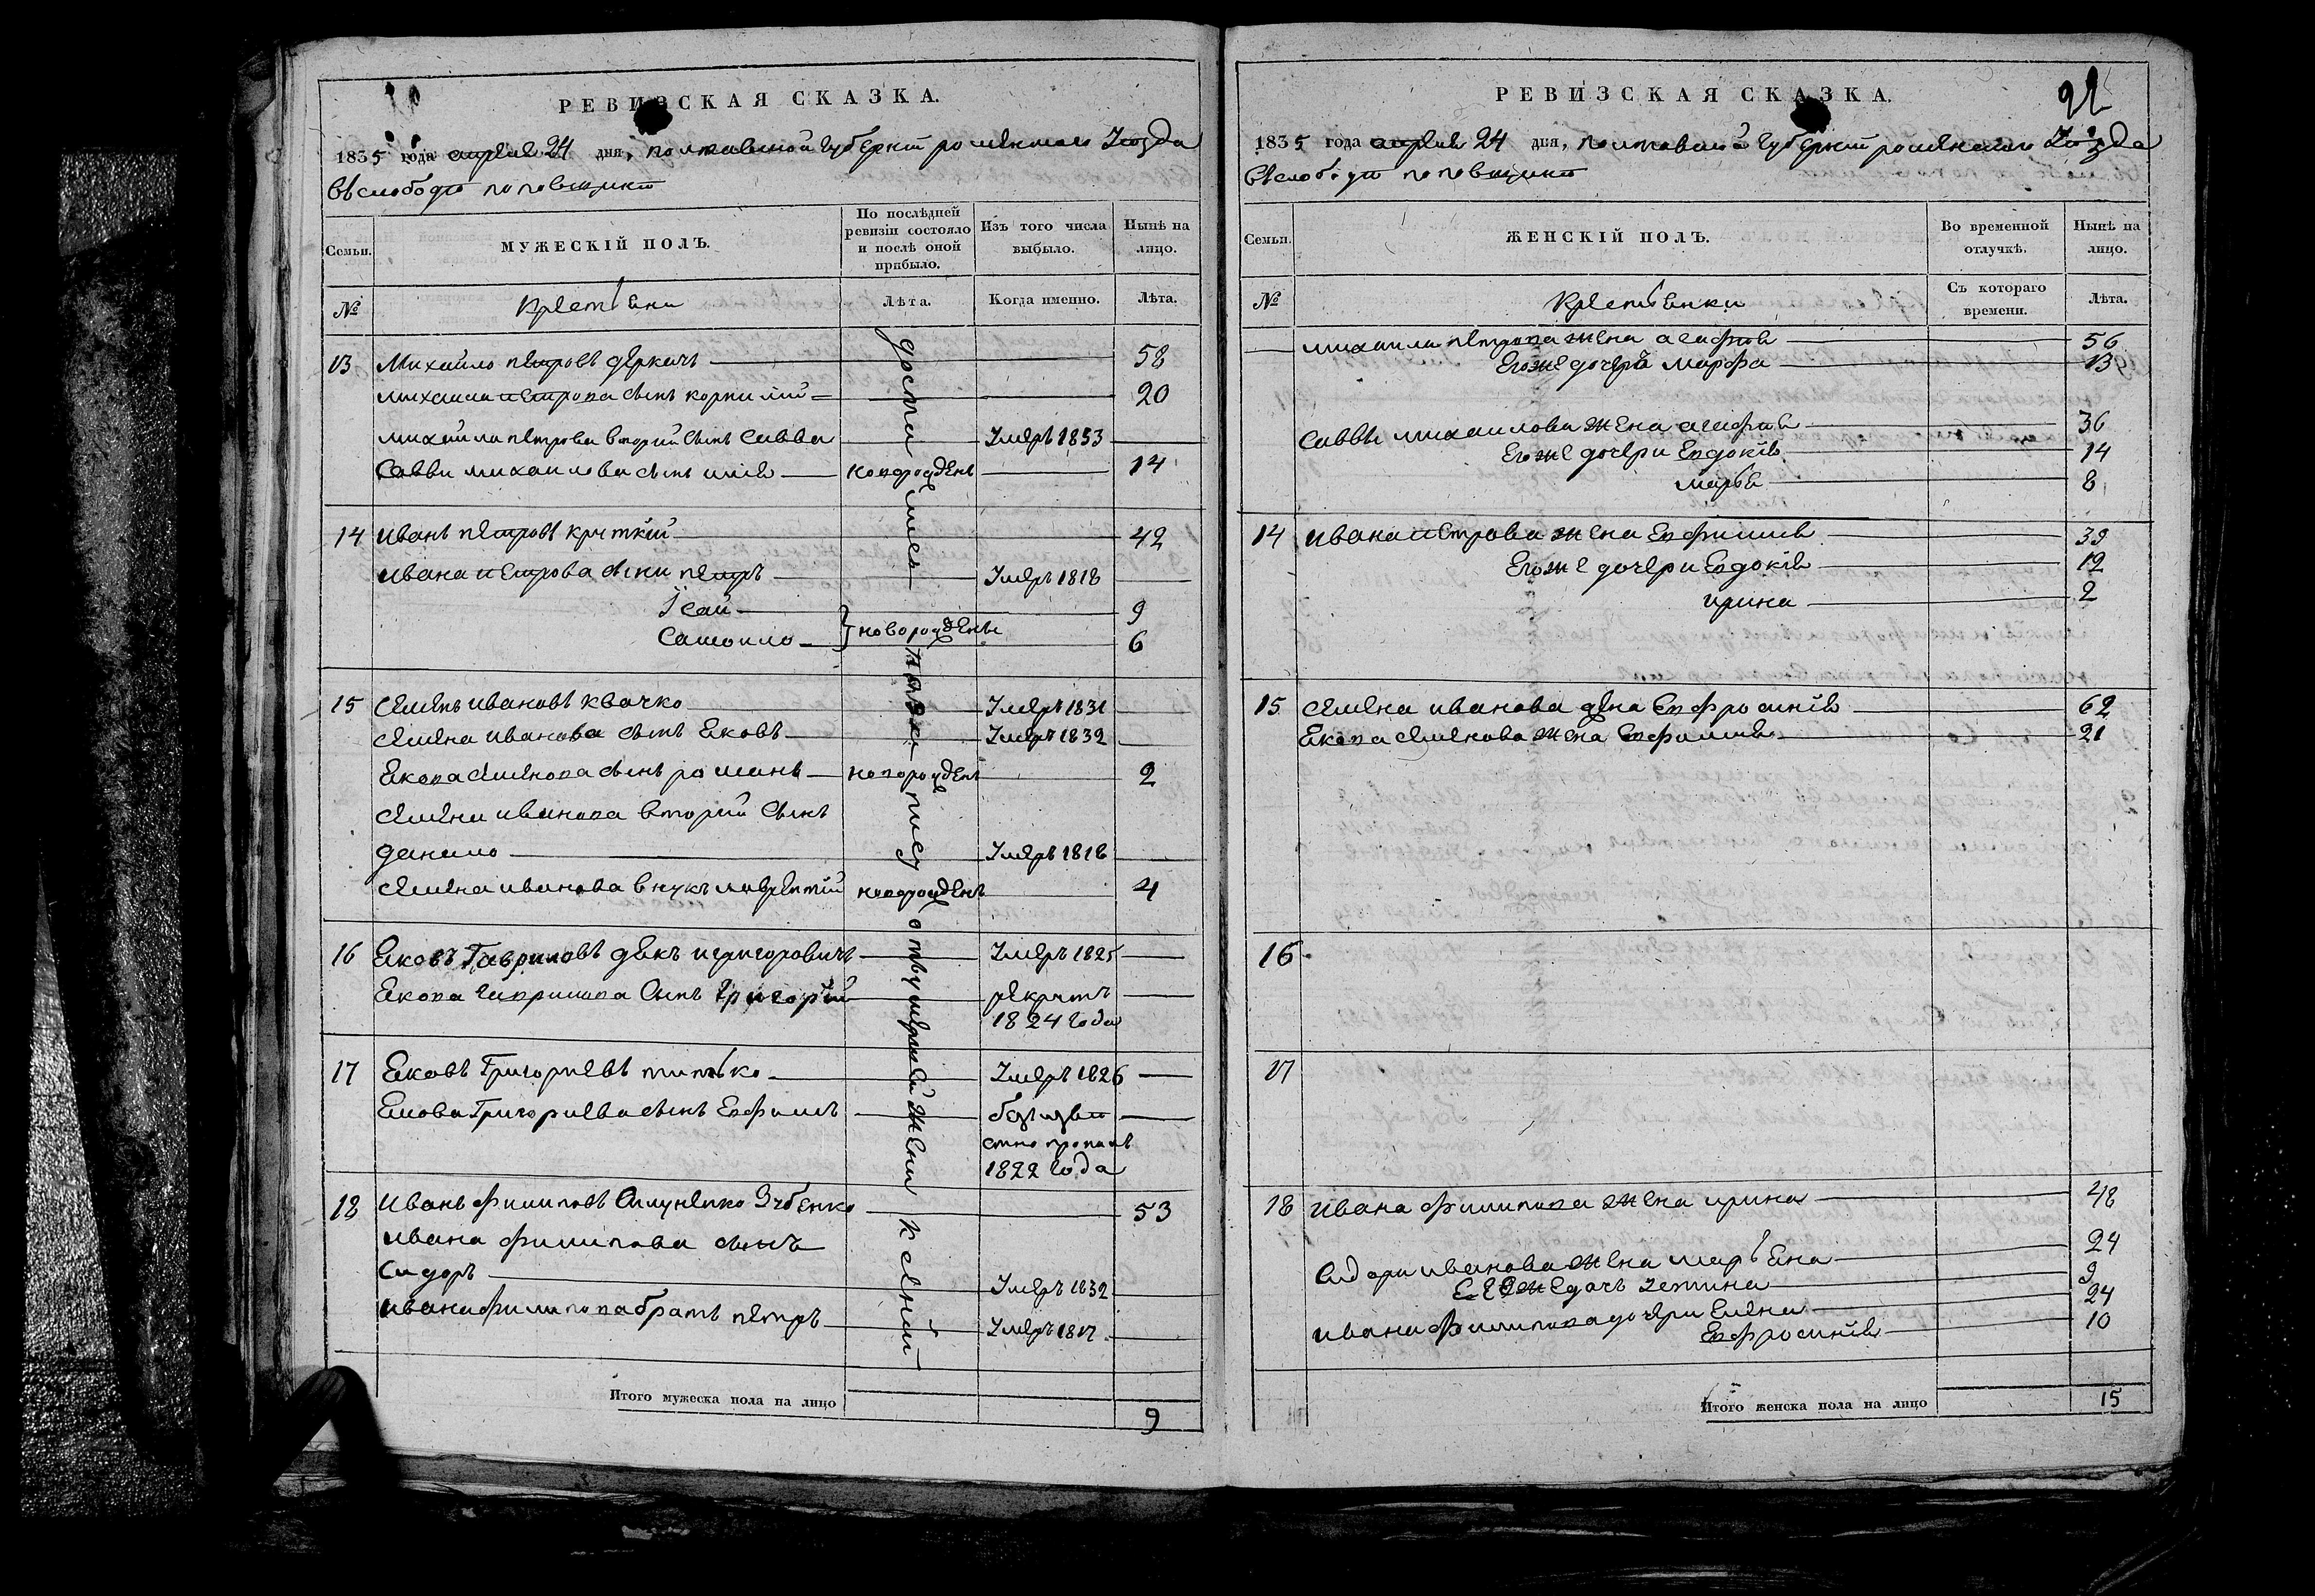 РЕВИЗСКАЯ СКАЗКА.
1835 года апреля 24 дня, полтавской губернїи роменского уезда
въ слободе поповщине
Семьи.
МУЖЕСКІЙ ПОЛЪ.
По послѣдней ревизіи состояло и послѣ оной прибыло.
Изъ того числа выбыло.
Нынѣ на лицо.
№
Крестьяни
Лѣта.
Когда именно.
Лѣта.
13 Михайло петровъ деркачъ 58
михаила петрова сынъ корнилїй 20
михаила петрова вторий сынъ Савва Умеръ 1833
Савви михаилова сынъ илія новорожденъ 14
14 иванъ петровъ круткїй 42
ивана петрова сыни петръ Умеръ 1818
Ісай 9
Самоило новорождены 6
15 Семенъ ивановъ квачко Умеръ 1831
Семена иванова сынъ Яковъ Умеръ 1832
Якова Семенова сынъ романъ новорожденъ 2
Семена иванова вторий сынъ
данило Умеръ 1818
Семена иванова внукъ лаврентїй новорожденъ 4
16 Яковъ Гавриловъ дякъ игригоровичъ Умеръ 1825
Якова гаврилова сынъ Григорїй рекрутъ
1824 года
17 Яковъ Григориевъ титко Умеръ 1826
Якова Григориева сынъ Евфимъ безъизве
стно пропалъ
1822 года
18 Иванъ филиповъ Зубенко 53
ивана филипова сынъ
Сидоръ Умеръ 1832
ивана филипова братъ петръ Умеръ 1817
Итого мужеска пола на лицо 9
РЕВИЗСКАЯ СКАЗКА.
1835 года апреля 24 дня, полтавской губернїи роменского уезда
въ слободе поповщине
Семьи.
ЖЕНСКІЙ ПОЛЪ.
Во временной отлучкѣ.
Нынѣ на лицо.
№
Крестьянки
Съ котораго времени.
Лѣта.
михаила петрова жена агафия 56
Егоже дочерь марфа 13
Саввы михаилова жена агафия 36
Егоже дочери Евдокїя 14
маръя 8
14 ивана петрова жена Евфимия 39
Егоже дочери Евдокїя 12
ирина 2
15 Семена иванова жена Евфросинїя 62
Якова Семенова жена Евфимия 21
16
17
18 ивана филипова жена ирина 48
Сидора иванова жена маръяна 24
Еяже дочь 9
ивана филипова дочери Елена 24
Евфросинїя 10
Итого женска пола на лицо 15